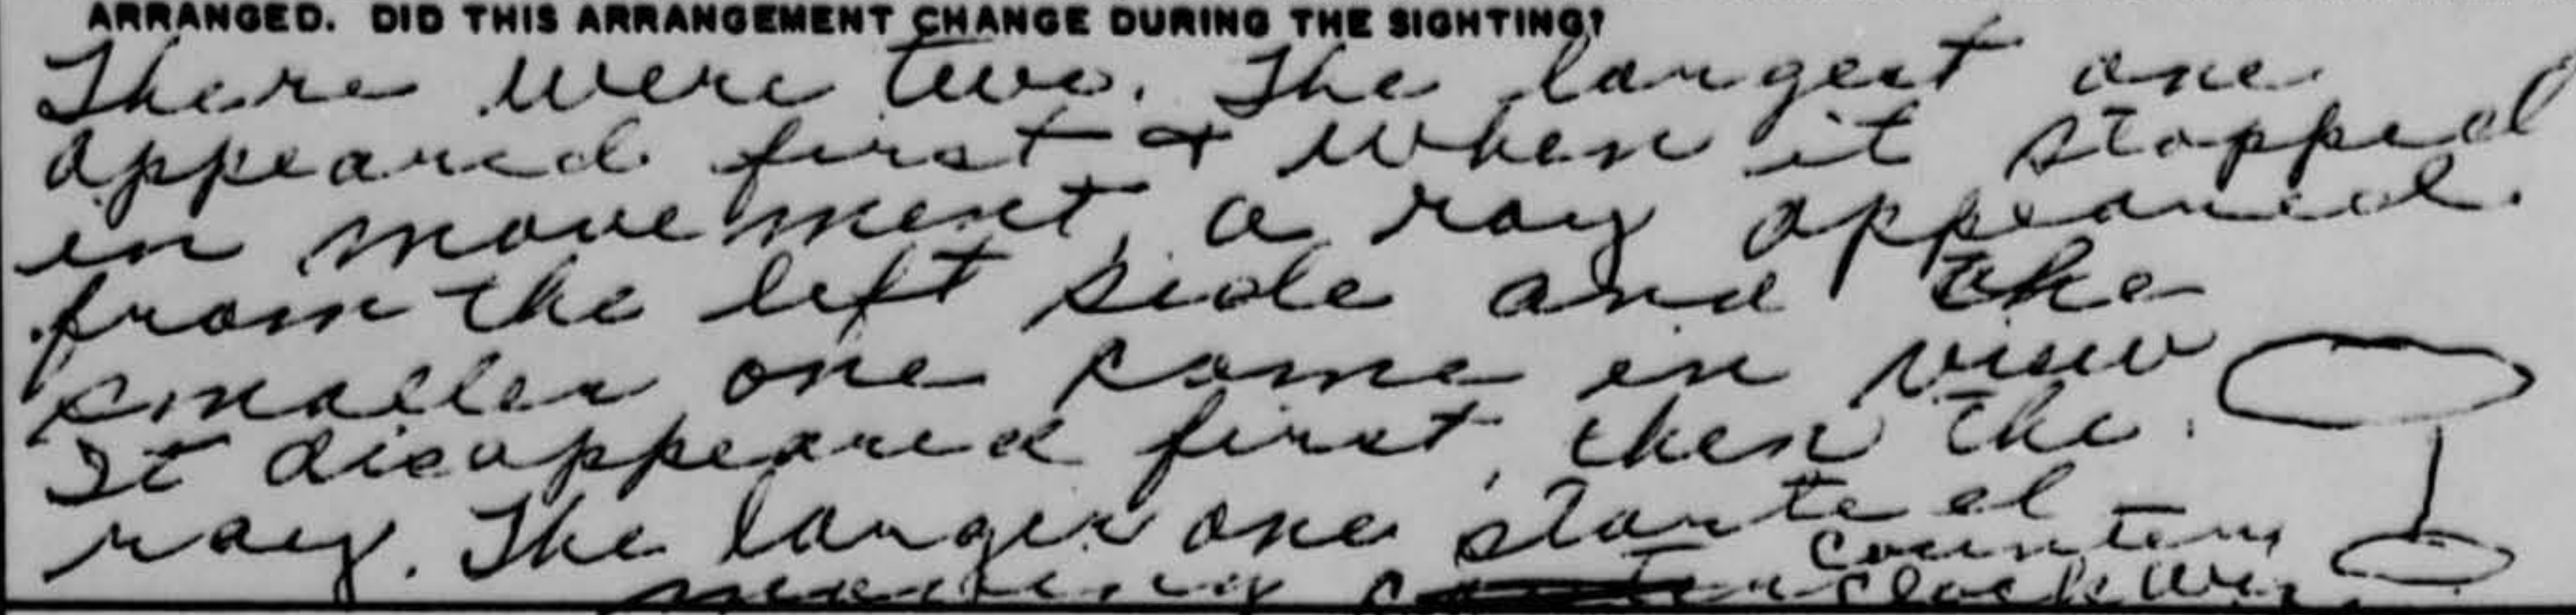 ARRANGED. DID THIS ARRANGEMENT CHANGE DURING THE SIGHTING?
There were two. The largest one
appeared first + when it stopped
in movement, a ray appeared
from the left side and the
smaller one came in view
It disappeared first, then the
ray. The larger one started
counter
clockwise